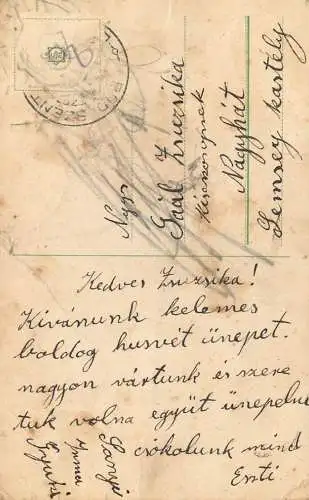 Nagys.
Gaál Zsuzsika
kisasszonynak
Nagyhát
Lemsey kastély
Kedves Zsuzsika!
Kivánunk kelemes
boldog husvét ünepet.
nagyon vártunk és szere
tuk volna együt ünepelni
csókolunk mind
Erzti
Sanyi
Irma
Gyuri